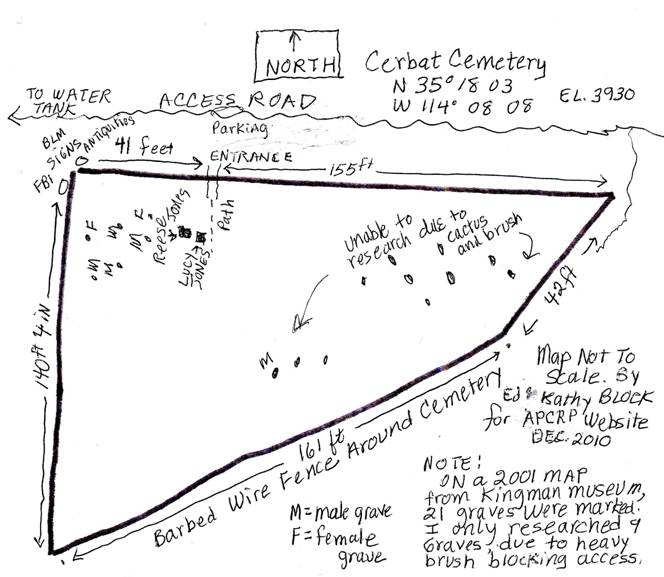 NORTH
Cerbat Cemetery
N 35° 18 03
W 114° 08 08
EL. 3930
TO WATER
TANK
ACCESS ROAD
Parking
BLM
SIGNS ANTIQUITIES
FBI
41 feet
ENTRANCE
155ft
Path
F
M
F
M
M
M
Reese
JONES
LUCY
JONES
Unable to
research due to
cactus
and brush
140ft 4in
42ft
M
161 ft
Barbed Wire Fence Around Cemetery
Map Not To
Scale. By
Ed & Kathy BLOCK
for APCRP Website
DEC. 2010
M=male grave
F=female
grave
NOTE:
ON a 2001 MAP
from Kingman museum,
21 graves were marked.
I only researched 9
Graves, due to heavy
brush blocking access.